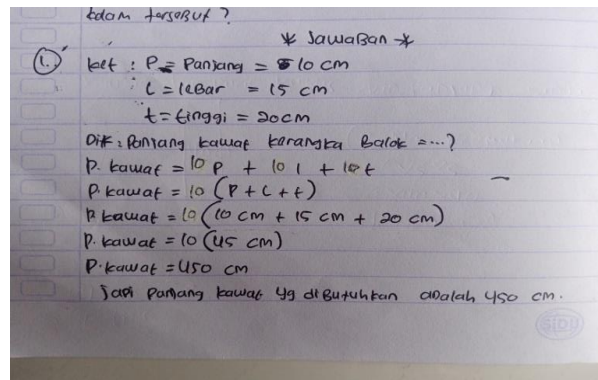 kolam tersebut ?
* Jawaban *
1. ket : P = Panjang = 10 cm
: L = lebar = 15 cm
t = tinggi = 20 cm
Dit : Panjang kawat kerangka Balok = ...?
P. kawat = 10 P + 10 l + 10 t
P. kawat = 10 (P + L + t)
P. kawat = 10 (10 cm + 15 cm + 20 cm)
P. kawat = 10 (45 cm)
P. kawat = 450 cm
Jadi Panjang kawat yg diButuhkan adalah 450 cm.
SIDU